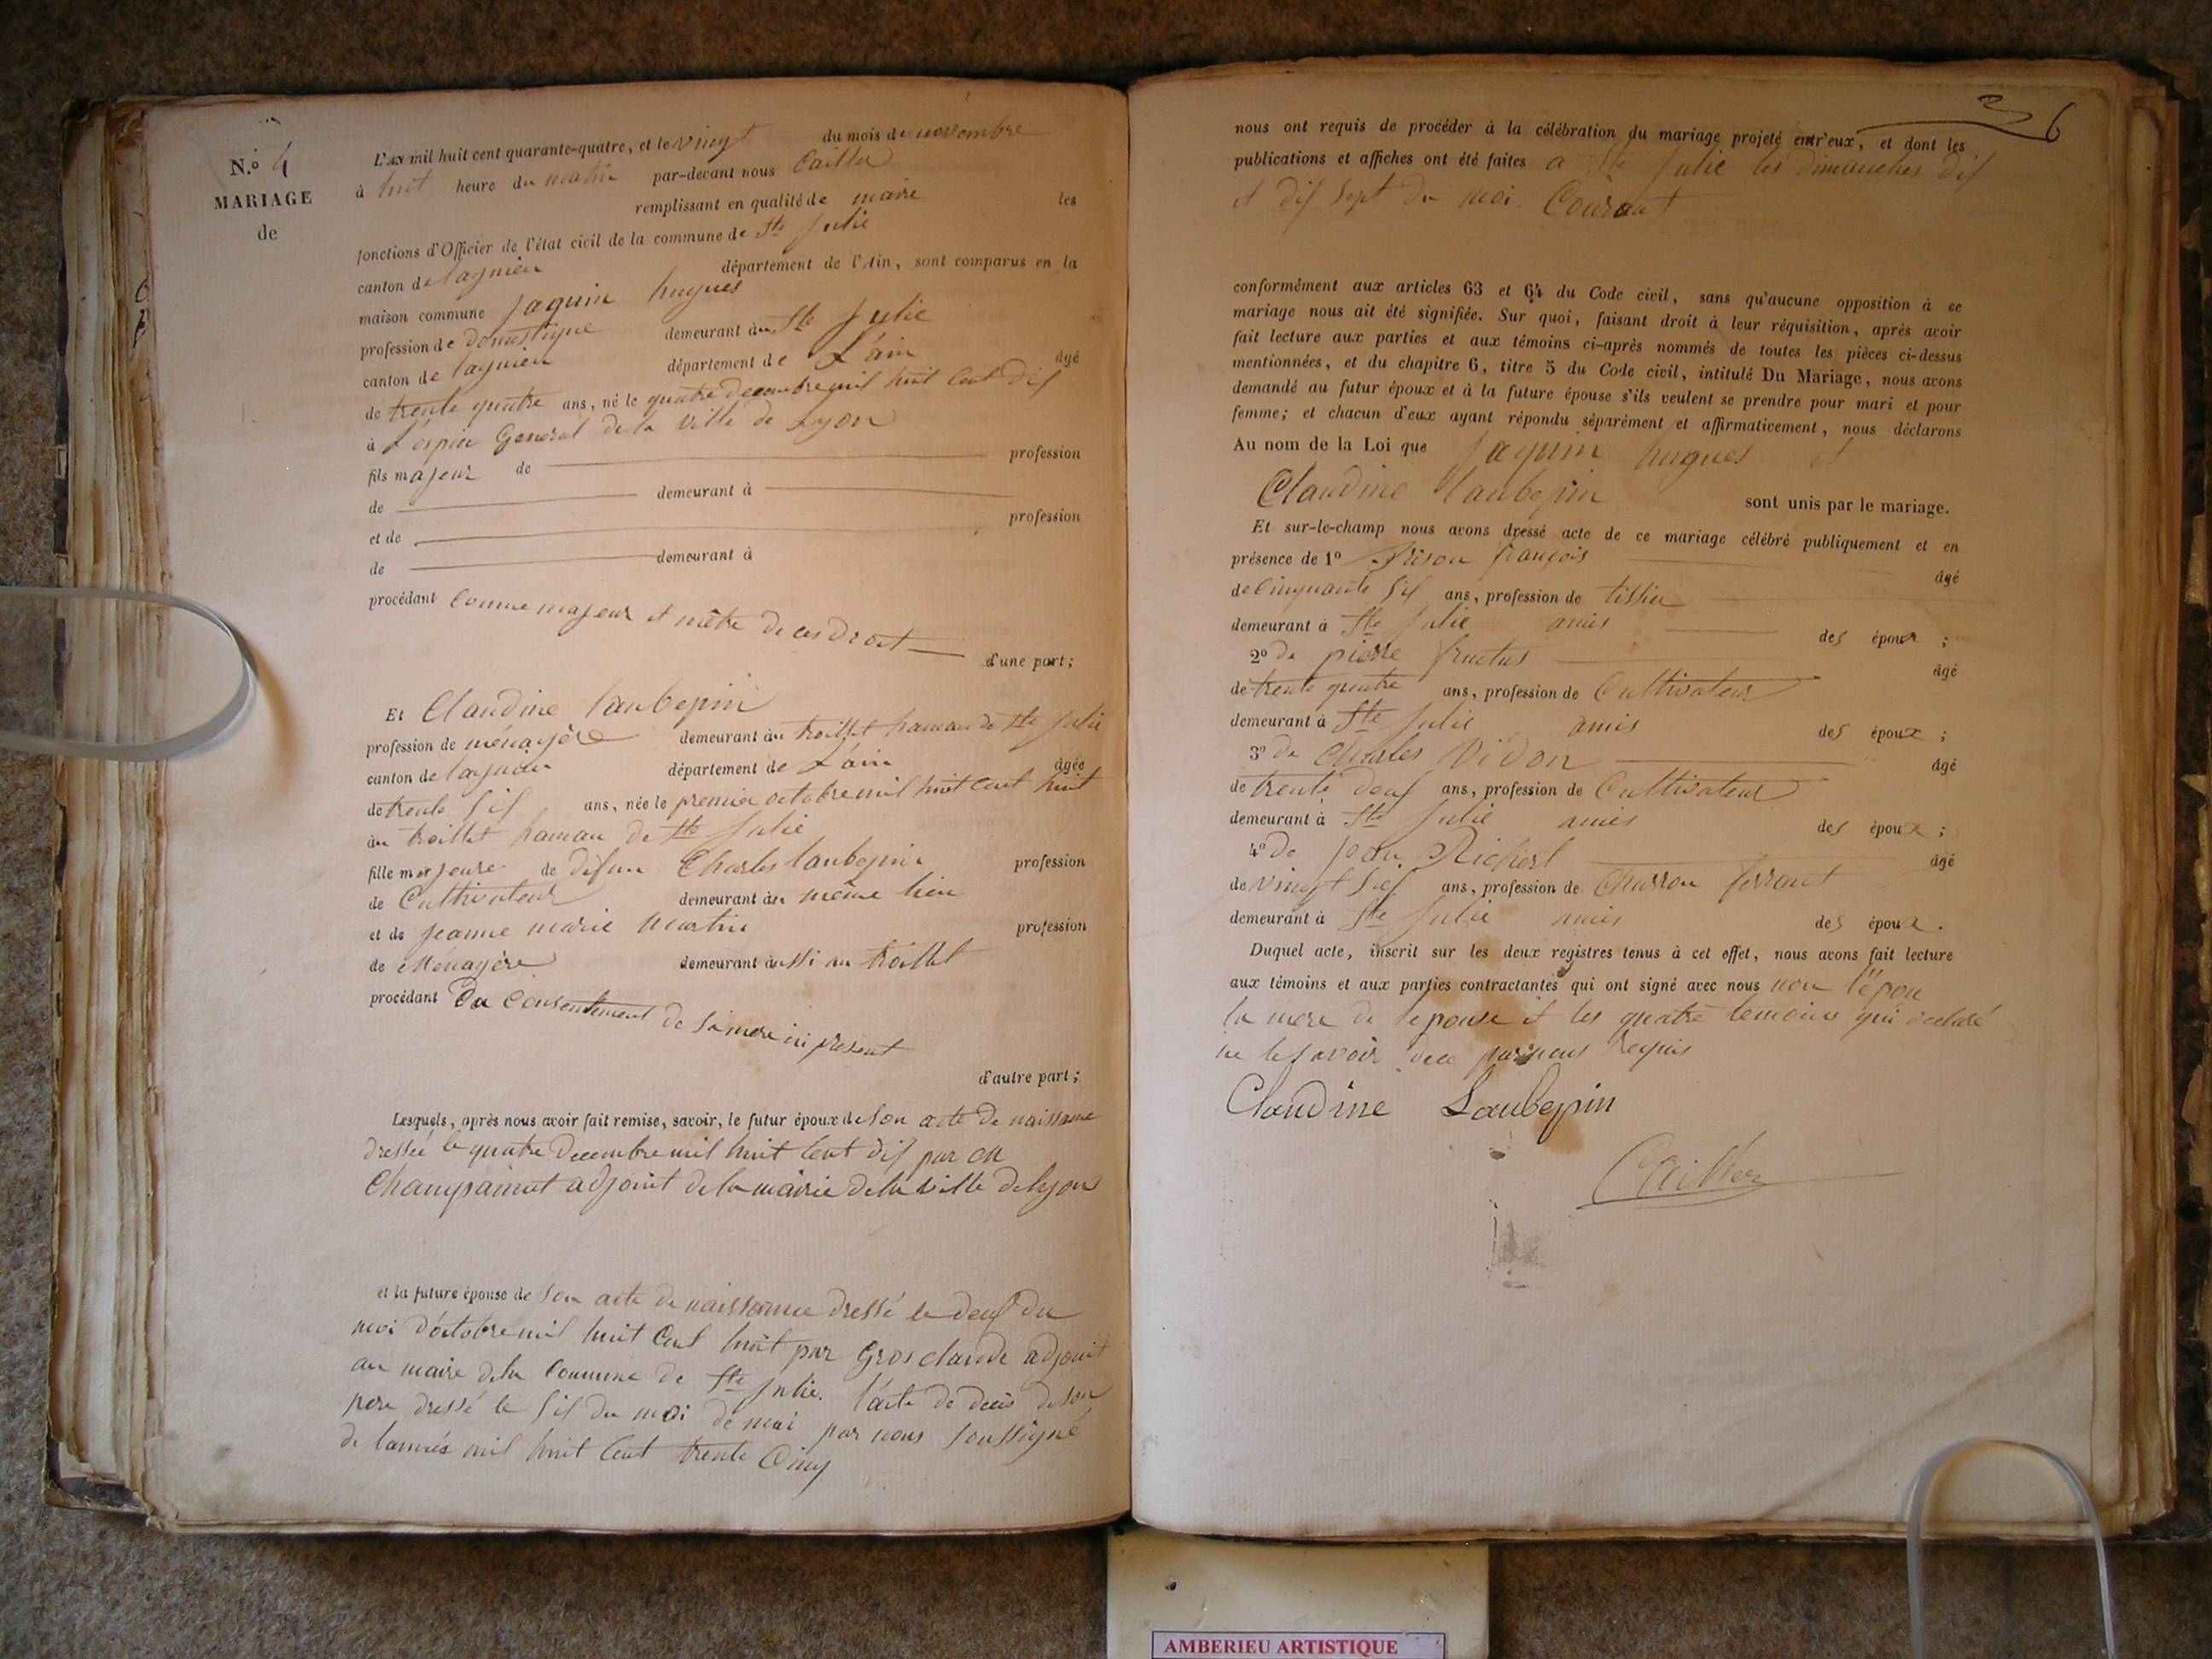 N.o 4
MARIAGE
de
L'an mil huit cent quarante-quatre, et le vingt du mois de novembre
à huit heure du matin par-devant nous Cailler
remplissant en qualité de maire les
fonctions d'Officier de l'état civil de la commune de Ste Julie
canton de lagnieu département de l'Ain, sont comparus en la
maison commune Jaquin hugues
profession de domestique demeurant àu Ste Julie
canton de lagnieu département de L'ain âgé
de trente quatre ans, né le quatre decembre mil huit Cent dix
à L'ospice General de la Ville de Lyon
fils majeur de profession
de demeurant à
et de profession
de demeurant à
procédant comme majeur et maitre de ces droit
d'une part;
Et Claudine laubepin
profession de ménagère demeurant àu trollet hamau de Ste Julie
canton de lagnieu département de L'ain âgée
de trente six ans, née le premier octobre mil huit Cent huit
àu trollet hamau de Ste Julie
fille majeure de défun Charles laubepin profession
de Cultivateur demeurant àu même lieu
et de jeanne marie Martin profession
de Ménagère demeurant àussi au trollet
procédant Du Consentement de sa mere ici present
d'autre part;
Lesquels, après nous avoir fait remise, savoir, le futur époux de Son acte de naissance
dressée le quatre decembre mil huit Cent dix par
adjoint de la mairie de la ville de lyon
et la future épouse de Son acte de naissance dressé le deux du
moi d'octobre mil huit Cent huit par Gros claude adjoint
au maire de la Commune de Ste Julie. l'acte de decès de son
pere dressé le Six du moi de mai par nous Soussigné
de lannés mil huit Cent trente Cinq
36
nous ont requis de procéder à la célébration du mariage projeté entr'eux, et dont les
publications et affiches ont été faites a Ste Julie les dimanches dix
et dix Sept du moi Courant
conformément aux articles 63 et 64 du Code civil, sans qu'aucune opposition à ce
mariage nous ait été signifiée. Sur quoi, faisant droit à leur réquisition, après avoir
fait lecture aux parties et aux témoins ci-après nommés de toutes les pièces ci-dessus
mentionnées, et du chapitre 6, titre 5 du Code civil, intitulé Du Mariage, nous avons
demandé au futur époux et à la future épouse s'ils veulent se prendre pour mari et pour
femme; et chacun d'eux ayant répondu séparément et affirmativement, nous déclarons
Au nom de la Loi que Jaquin hugues et
Claudine laubepin sont unis par le mariage.
Et sur-le-champ nous avons dressé acte de ce mariage célébré publiquement et en
présence de 1o françois âgé
de Cinquante Six ans, profession de tissier
demeurant à Ste Julie amis des époux ;
2o de pierre fructus âgé
de trente quatre ans, profession de Cultivateur
demeurant à Ste Julie amis des époux ;
3o de Charles Vidon âgé
de trente deux ans, profession de Cultivateur
demeurant à Ste Julie amis des époux ;
4o de jean Richerl âgé
de Vingt Sief ans, profession de Charron ferrant
demeurant à Ste Julie amis des époux.
Duquel acte, inscrit sur les deux registres tenus à cet effet, nous avons fait lecture
aux témoins et aux parties contractantes qui ont signé avec nous non l'épou
la mere de lepouse et les quatre temoins qui declaré
ne le savoir par nous Requis
Claudine Laubepin
Cailler
AMBERIEU ARTISTIQUE